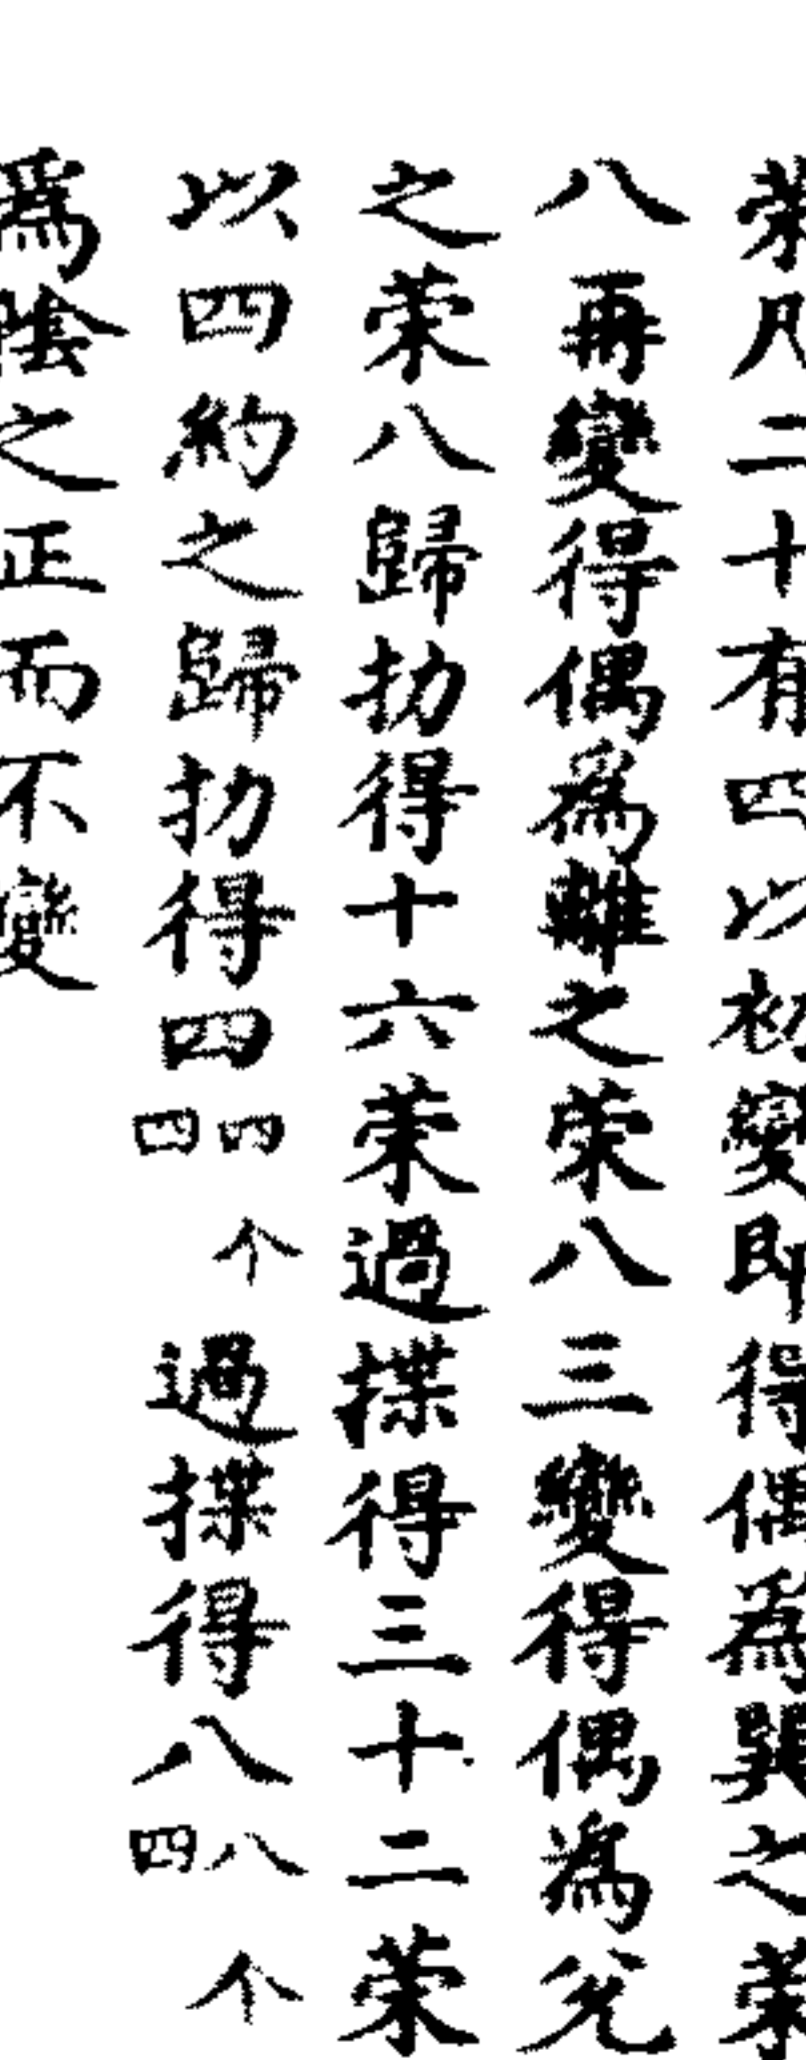 䇿凡二十有四以初變即得偶爲巽之䇿
八再變得偶爲離之䇿八三變得偶爲兌
之䇿八歸扐得十六䇿過揲得三十二䇿
以四約之歸扐得四四四个過揲得八八四个
爲陰之正而不變